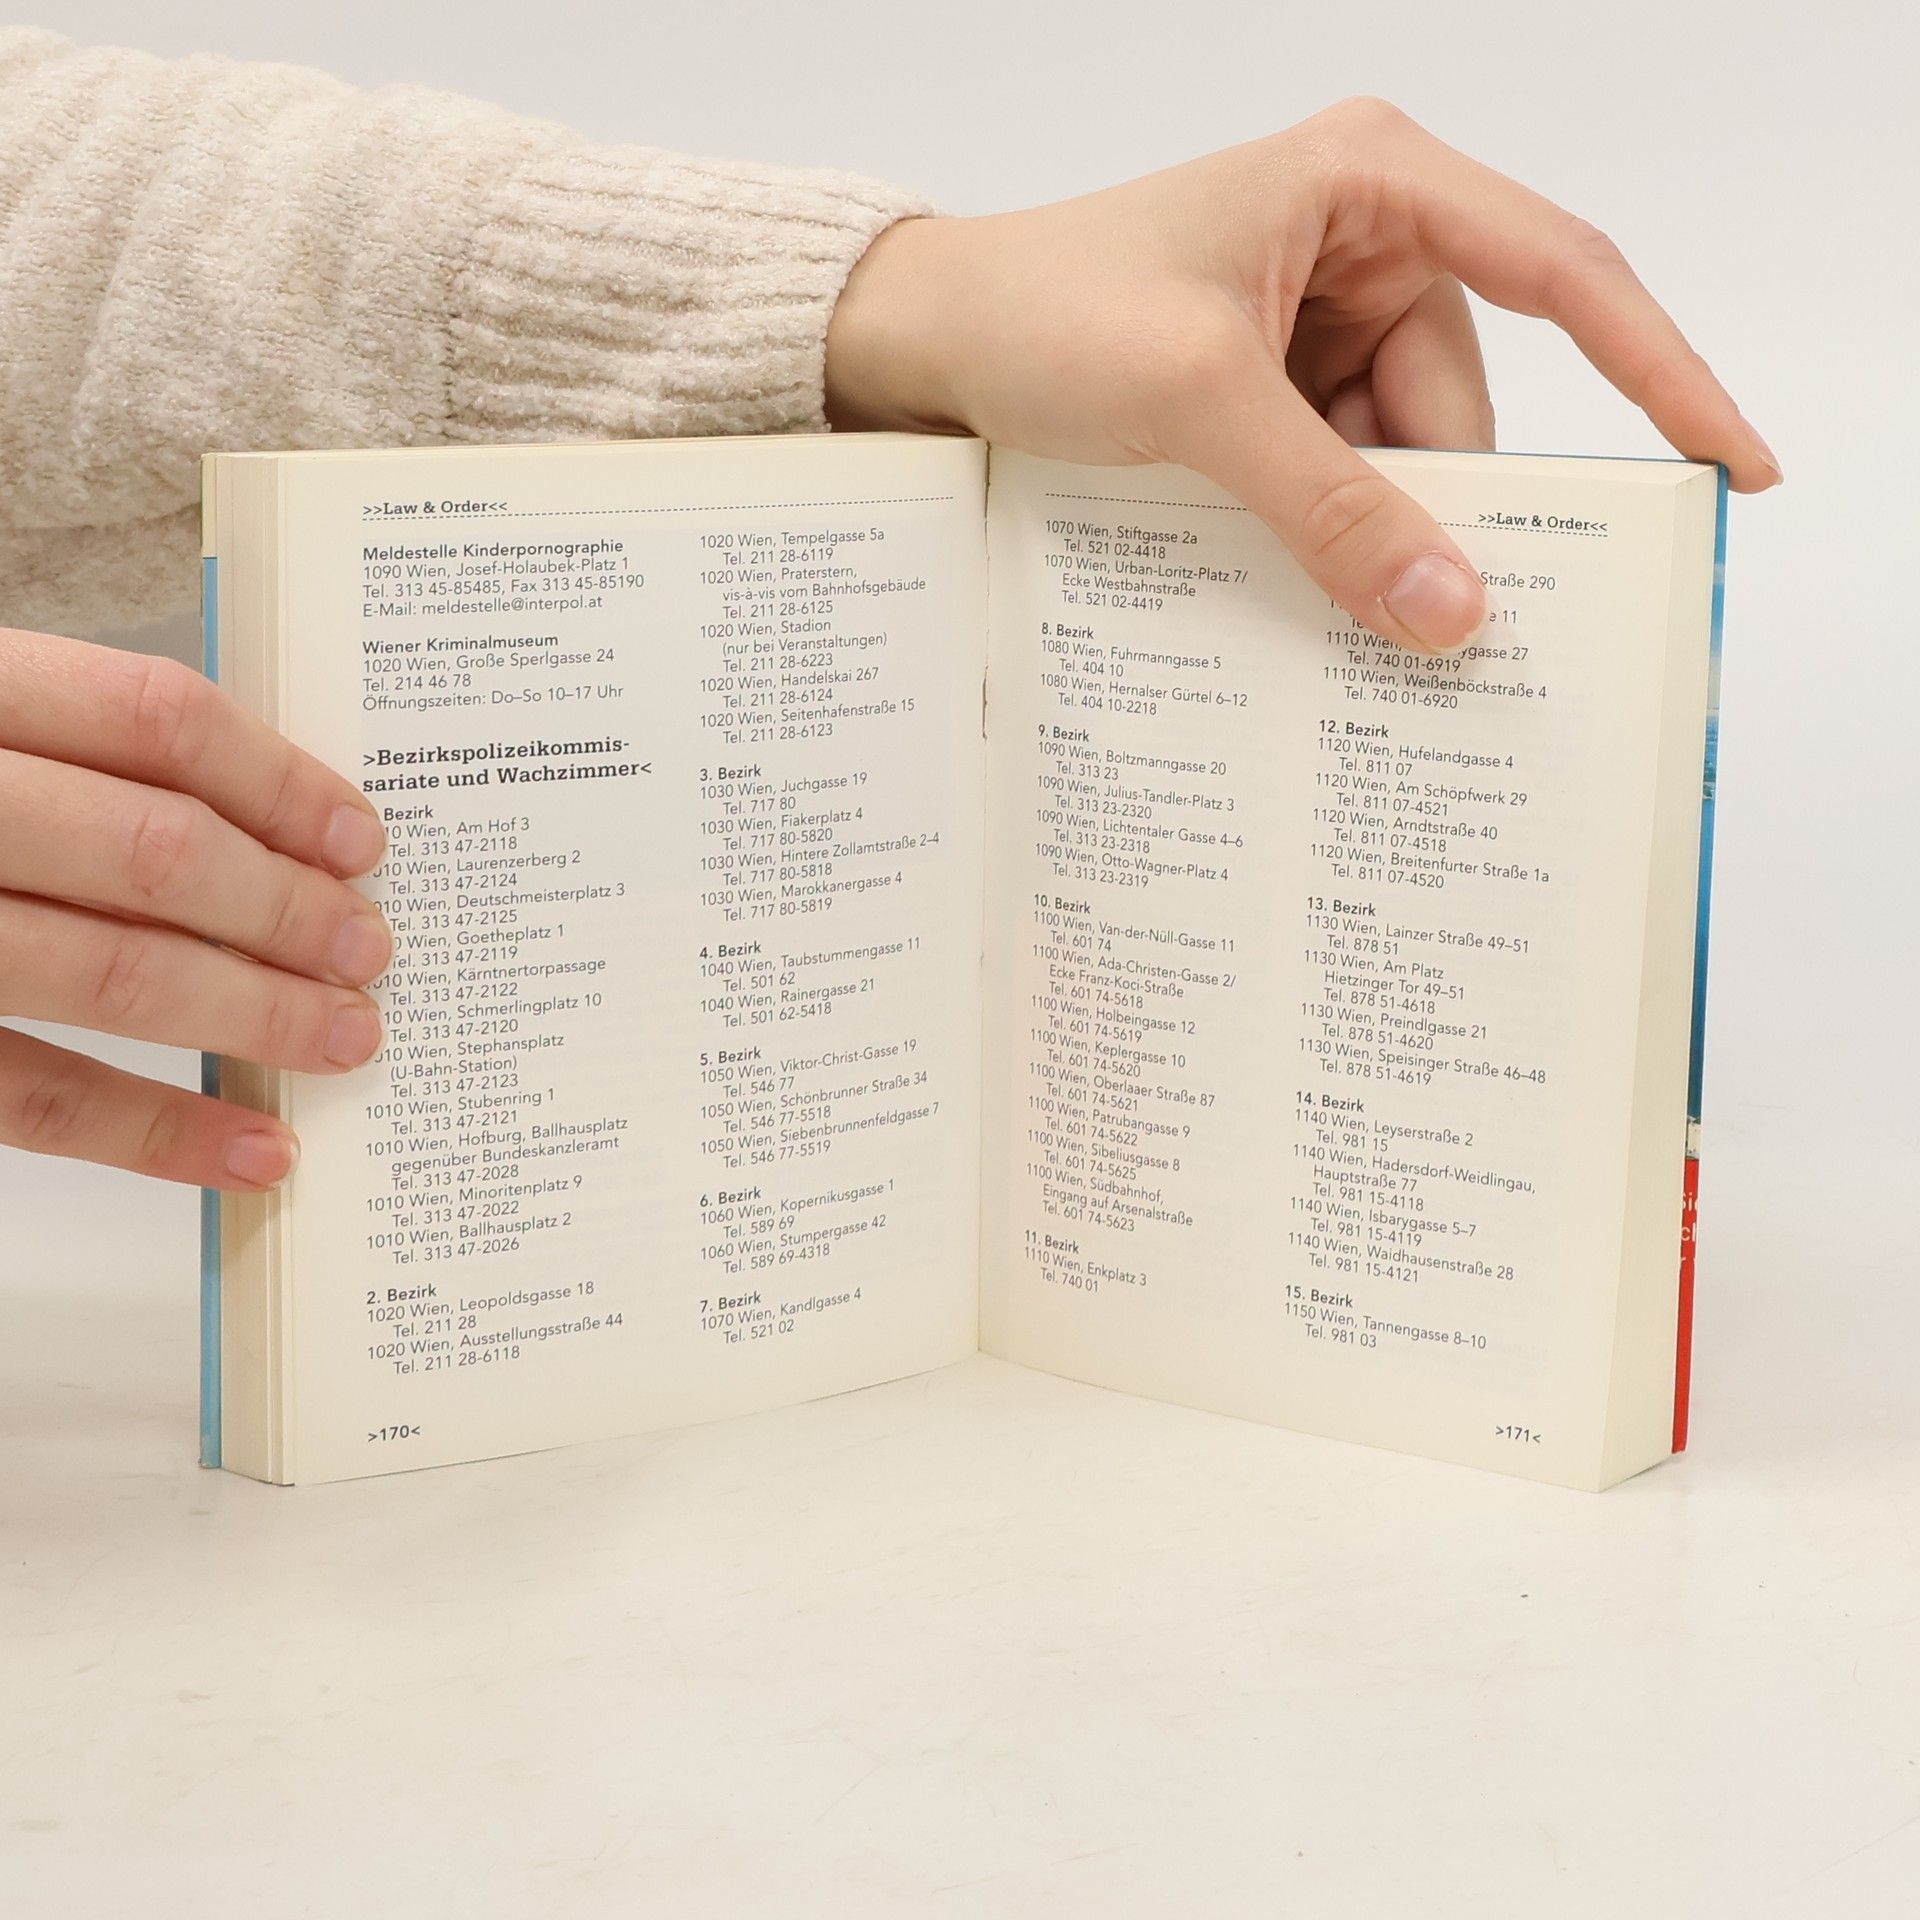 >>Law & Order<<
Meldestelle Kinderpornographie
1090 Wien, Josef-Holaubek-Platz 1
Tel. 313 45-85485, Fax 313 45-85190
E-Mail: meldestelle@interpol.at
Wiener Kriminalmuseum
1020 Wien, Große Sperlgasse 24
Tel. 214 46 78
Öffnungszeiten: Do–So 10–17 Uhr
>Bezirkspolizeikommis-
sariate und Wachzimmer<
Bezirk
Wien, Am Hof 3
Tel. 313 47-2118
Wien, Laurenzerberg 2
Tel. 313 47-2124
Wien, Deutschmeisterplatz 3
Tel. 313 47-2125
Wien, Goetheplatz 1
Tel. 313 47-2119
Wien, Kärntnertorpassage
Tel. 313 47-2122
Wien, Schmerlingplatz 10
Tel. 313 47-2120
Wien, Stephansplatz
(U-Bahn-Station)
Tel. 313 47-2123
1010 Wien, Stubenring 1
Tel. 313 47-2121
1010 Wien, Hofburg, Ballhausplatz
gegenüber Bundeskanzleramt
Tel. 313 47-2028
1010 Wien, Minoritenplatz 9
Tel. 313 47-2022
1010 Wien, Ballhausplatz 2
Tel. 313 47-2026
2. Bezirk
1020 Wien, Leopoldsgasse 18
Tel. 211 28
1020 Wien, Ausstellungsstraße 44
Tel. 211 28-6118
1020 Wien, Tempelgasse 5a
Tel. 211 28-6119
1020 Wien, Praterstern,
vis-à-vis vom Bahnhofsgebäude
Tel. 211 28-6125
1020 Wien, Stadion
(nur bei Veranstaltungen)
Tel. 211 28-6223
1020 Wien, Handelskai 267
Tel. 211 28-6124
1020 Wien, Seitenhafenstraße 15
Tel. 211 28-6123
3. Bezirk
1030 Wien, Juchgasse 19
Tel. 717 80
1030 Wien, Fiakerplatz 4
Tel. 717 80-5820
1030 Wien, Hintere Zollamtstraße 2–4
Tel. 717 80-5818
1030 Wien, Marokkanergasse 4
Tel. 717 80-5819
4. Bezirk
1040 Wien, Taubstummengasse 11
Tel. 501 62
1040 Wien, Rainergasse 21
Tel. 501 62-5418
5. Bezirk
1050 Wien, Viktor-Christ-Gasse 19
Tel. 546 77
1050 Wien, Schönbrunner Straße 34
Tel. 546 77-5518
1050 Wien, Siebenbrunnenfeldgasse 7
Tel. 546 77-5519
6. Bezirk
1060 Wien, Kopernikusgasse 1
Tel. 589 69
1060 Wien, Stumpergasse 42
Tel. 589 69-4318
7. Bezirk
1070 Wien, Kandlgasse 4
Tel. 521 02
>170<
>>Law & Order<<
1070 Wien, Stiftgasse 2a
Tel. 521 02-4418
1070 Wien, Urban-Loritz-Platz 7/
Ecke Westbahnstraße
Tel. 521 02-4419
8. Bezirk
1080 Wien, Fuhrmanngasse 5
Tel. 404 10
1080 Wien, Hernalser Gürtel 6–12
Tel. 404 10-2218
9. Bezirk
1090 Wien, Boltzmanngasse 20
Tel. 313 23
1090 Wien, Julius-Tandler-Platz 3
Tel. 313 23-2320
1090 Wien, Lichtentaler Gasse 4–6
Tel. 313 23-2318
1090 Wien, Otto-Wagner-Platz 4
Tel. 313 23-2319
10. Bezirk
1100 Wien, Van-der-Nüll-Gasse 11
Tel. 601 74
1100 Wien, Ada-Christen-Gasse 2/
Ecke Franz-Koci-Straße
Tel. 601 74-5618
1100 Wien, Holbeingasse 12
Tel. 601 74-5619
1100 Wien, Keplergasse 10
Tel. 601 74-5620
1100 Wien, Oberlaaer Straße 87
Tel. 601 74-5621
1100 Wien, Patrubangasse 9
Tel. 601 74-5622
1100 Wien, Sibeliusgasse 8
Tel. 601 74-5625
1100 Wien, Südbahnhof,
Eingang auf Arsenalstraße
Tel. 601 74-5623
11. Bezirk
1110 Wien, Enkplatz 3
Tel. 740 01
Straße 290
11
1110 Wien, 27
Tel. 740 01-6919
1110 Wien, Weißenböckstraße 4
Tel. 740 01-6920
12. Bezirk
1120 Wien, Hufelandgasse 4
Tel. 811 07
1120 Wien, Am Schöpfwerk 29
Tel. 811 07-4521
1120 Wien, Arndtstraße 40
Tel. 811 07-4518
1120 Wien, Breitenfurter Straße 1a
Tel. 811 07-4520
13. Bezirk
1130 Wien, Lainzer Straße 49–51
Tel. 878 51
1130 Wien, Am Platz
Hietzinger Tor 49–51
Tel. 878 51-4618
1130 Wien, Preindlgasse 21
Tel. 878 51-4620
1130 Wien, Speisinger Straße 46–48
Tel. 878 51-4619
14. Bezirk
1140 Wien, Leyserstraße 2
Tel. 981 15
1140 Wien, Hadersdorf-Weidlingau,
Hauptstraße 77
Tel. 981 15-4118
1140 Wien, Isbarygasse 5–7
Tel. 981 15-4119
1140 Wien, Waidhausenstraße 28
Tel. 981 15-4121
15. Bezirk
1150 Wien, Tannengasse 8–10
Tel. 981 03
>171<